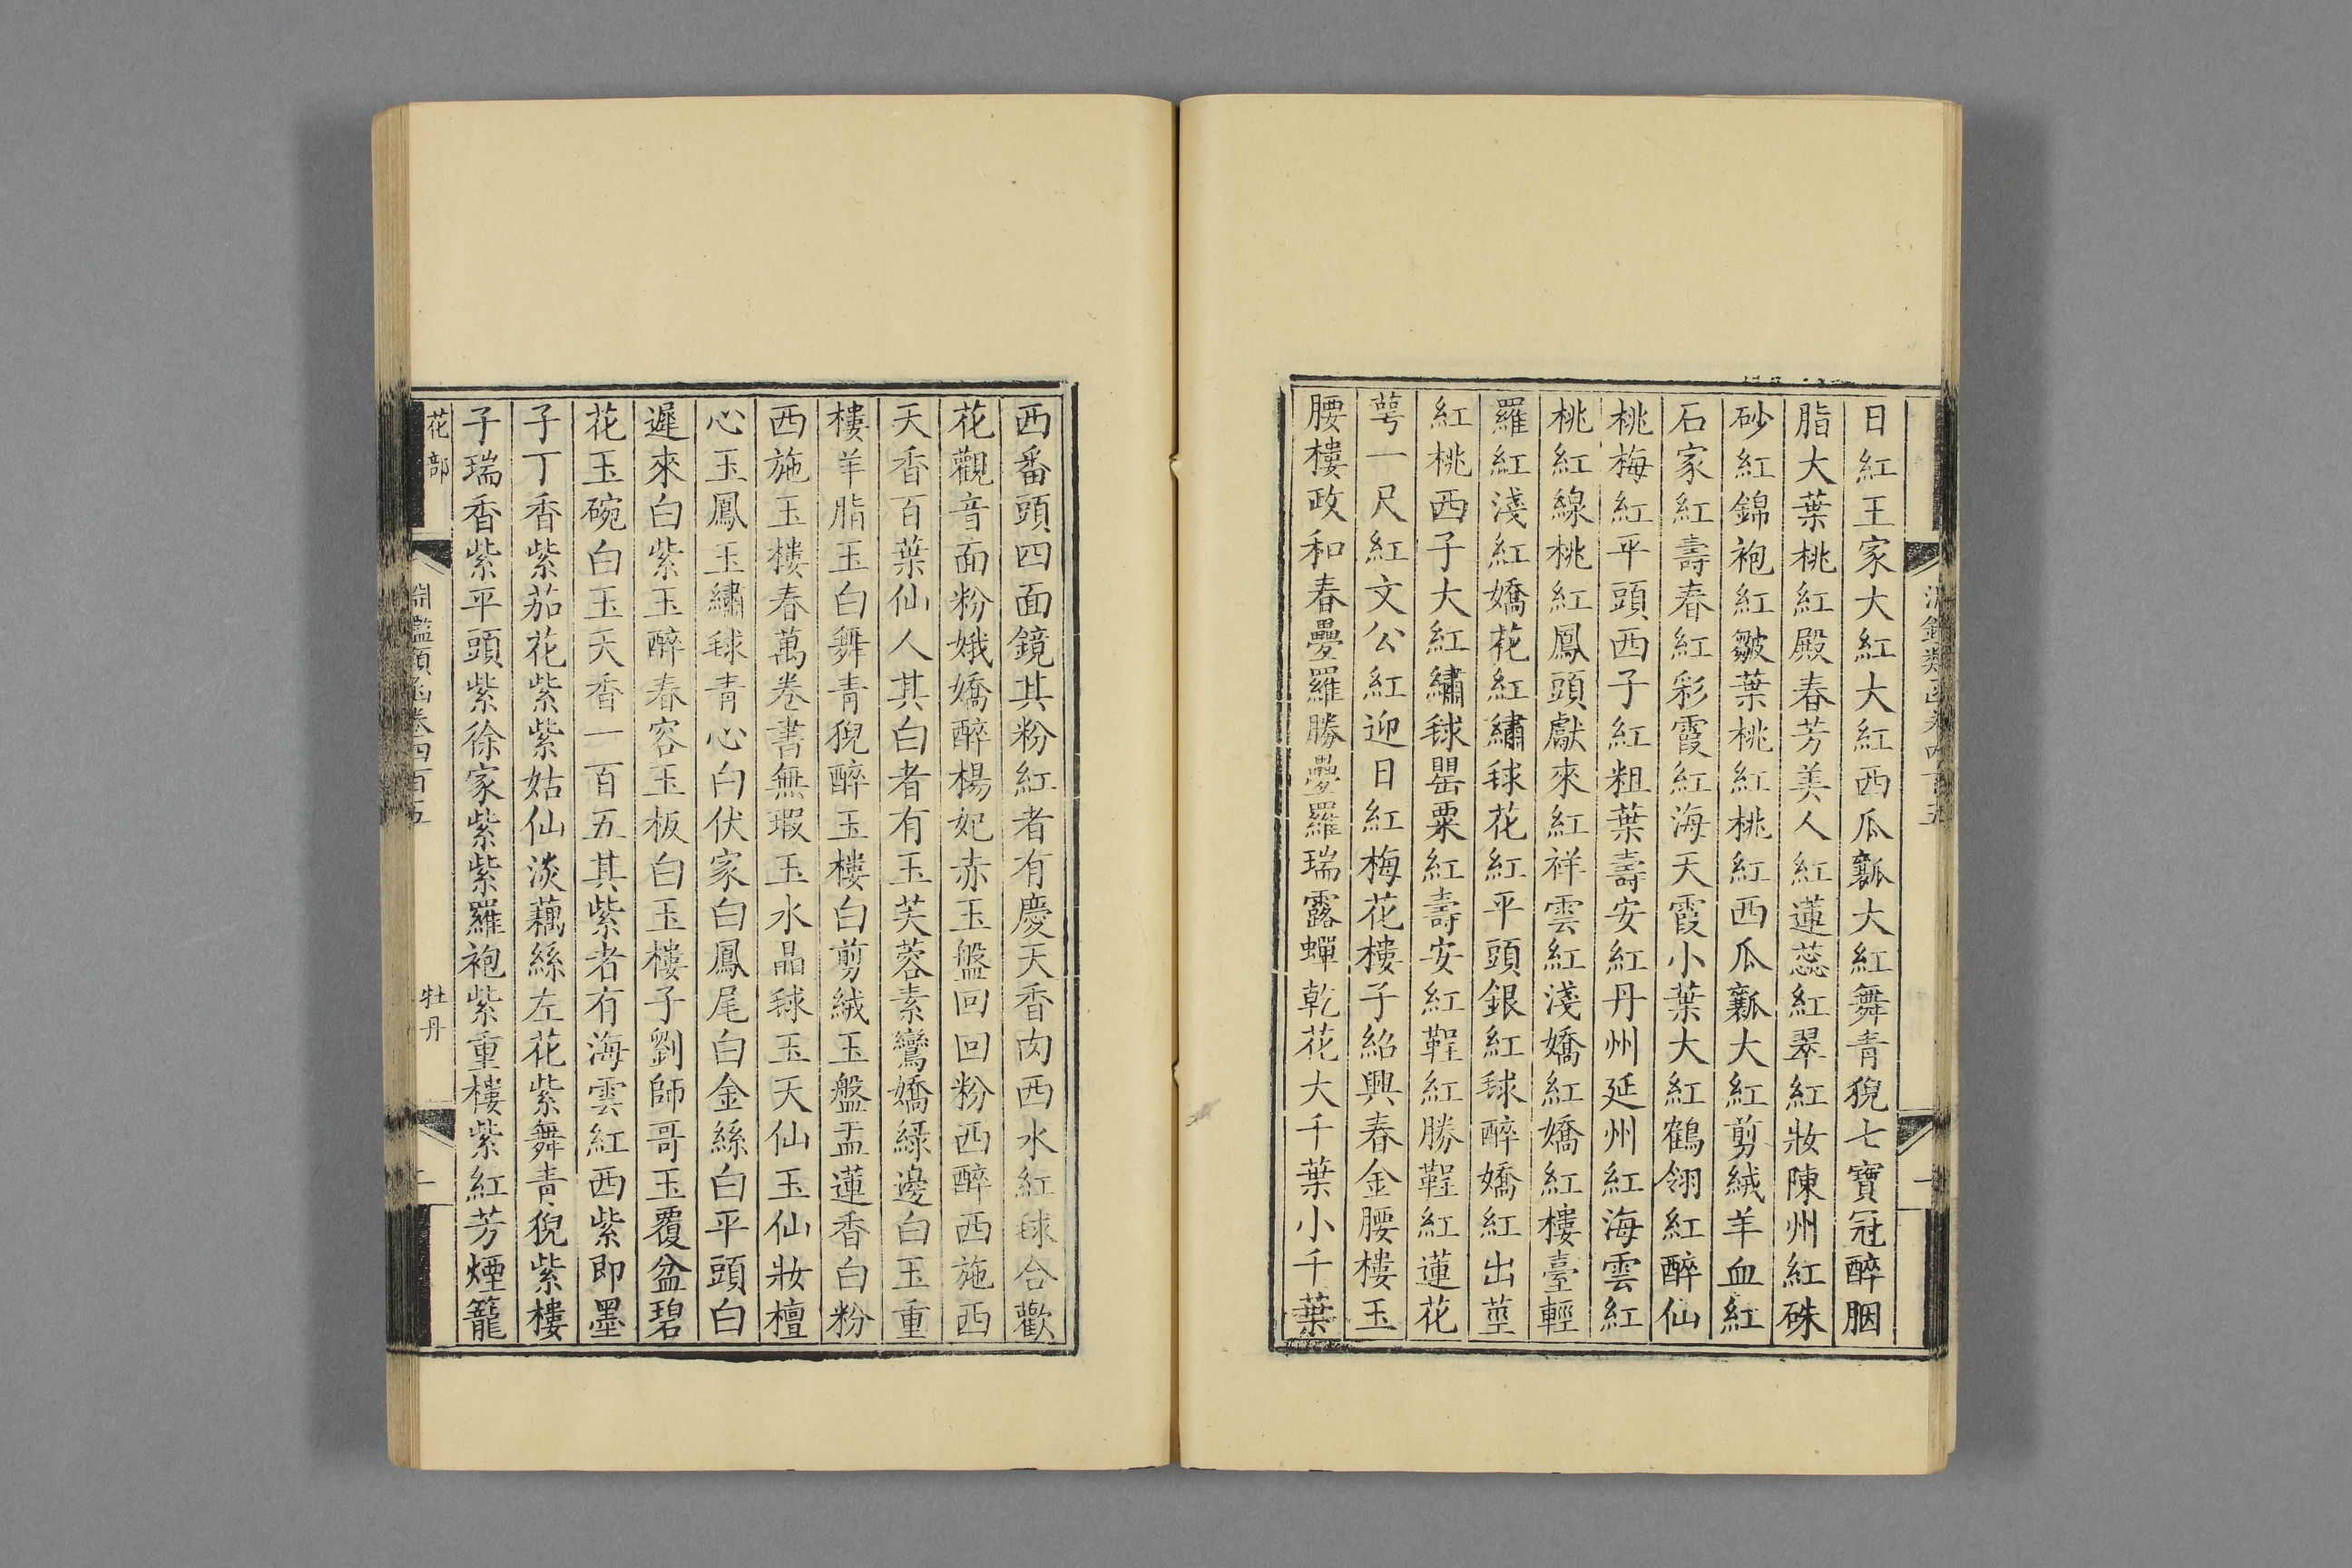 日紅王家大紅大紅西瓜瓤大紅舞青猊七寶冠醉胭
脂大葉桃紅殿春芳美人紅蓮蕊紅翠紅妝陳州紅硃
砂紅錦袍紅皺葉桃紅桃紅西瓜瓤大紅剪絨羊血紅
石家紅壽春紅彩霞紅海天霞小葉大紅鶴翎紅醉仙
桃梅紅平頭西子紅粗葉壽安紅丹州延州紅海雲紅
桃紅線桃紅鳳頭獻來紅祥雲紅淺嬌紅嬌紅樓臺輕
羅紅淺紅嬌花紅繡毬花紅平頭銀紅毬醉嬌紅出莖
紅桃西子大紅繡毬罌粟紅壽安紅鞓紅勝鞓紅蓮花
萼一尺紅文公紅迎日紅梅花樓子紹興春金腰樓玉
腰樓政和春疊羅勝疊羅瑞露蟬乾花大千葉小千葉
西番頭四面鏡其粉紅者有慶天香肉西水紅毬合歡
花觀音面粉娥嬌醉楊妃赤玉盤回回粉西醉西施西
天香百葉仙人其白者有玉芙蓉素鸞嬌綠邊白玉重
樓羊脂玉白舞青猊醉玉樓白剪絨玉盤盂蓮香白粉
西施玉樓春萬卷書無瑕玉水晶毬玉天仙玉仙妝檀
心玉鳳玉繡毬青心白伏家白鳳尾白金絲白平頭白
遲來白紫玉醉春容玉板白玉樓子劉師哥玉覆盆碧
花玉碗白玉天香一百五其紫者有海雲紅西紫即墨
子丁香紫茄花紫紫姑仙淡藕絲左花紫舞青猊紫樓
子瑞香紫平頭紫徐家紫紫羅袍紫重樓紫紅芳煙籠
花部 淵鑑類函卷四百五 牡丹